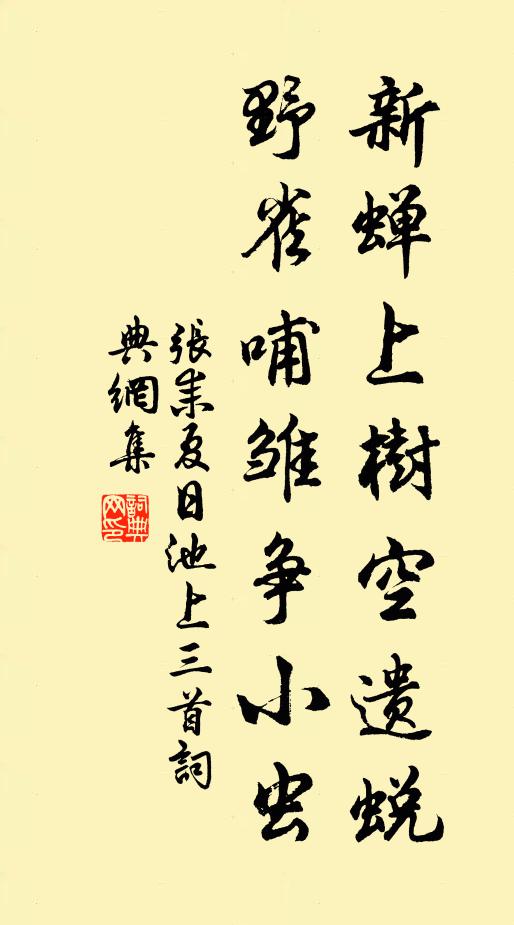 新蝉上樹空遺蜕
野雀哺雏争小虫
張耒夏日池上三首詞
典網集
詞典網印